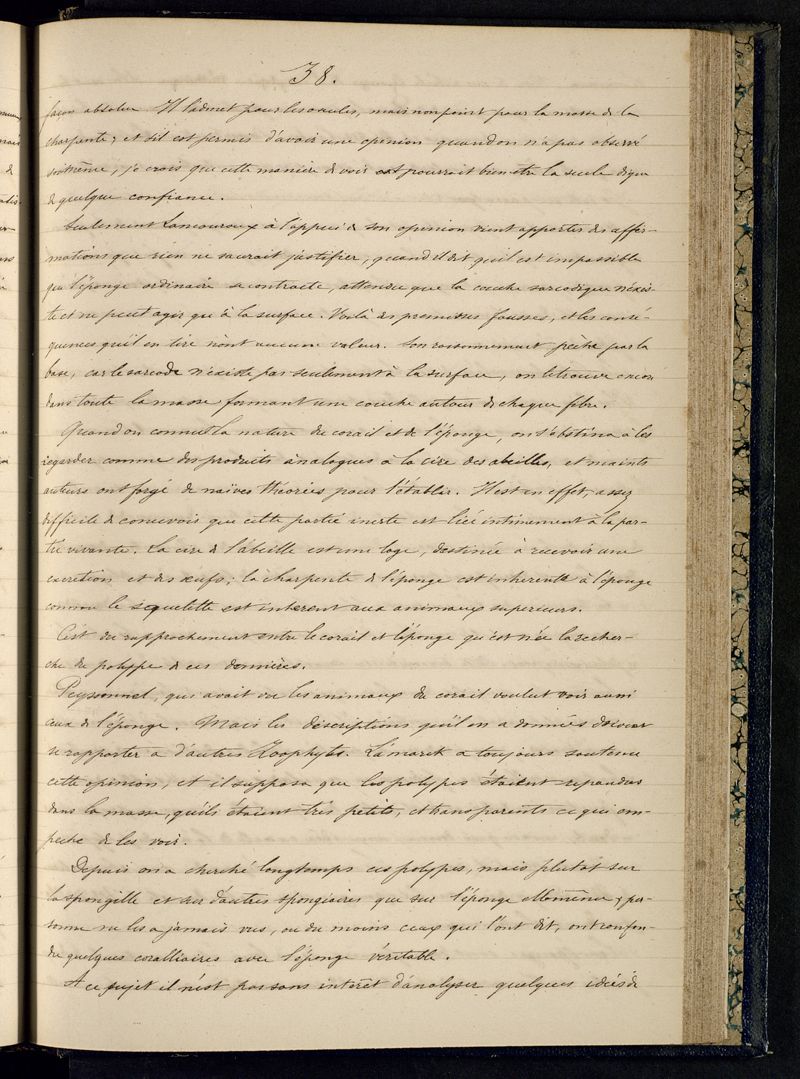 38.
façon absolue. Il l'admet pour les oscules, mais non point pour la masse de la
charpente; et s'il est permis d'avoir une opinion quand on n'a pas observé
soi même, je crois que cette manière de voir pourrait bien être la seule digne
de quelque confiance.
Seulement Lamouroux à l'appui de son opinion vient apporter des affir-
mations que rien ne saurait justifier, quand il dit qu'il est impossible
que l'éponge ordinaire se contracte, attendu que la couche sarcodique n'exis-
te et ne peut agir que à la surface. Voilà des premisses fausses, et les consé-
quences qu'il en tire n'ont aucune valeur. Son raisonnement pèche par la
base, car le sarcode n'existe pas seulement à la surface, on le trouve encore
dans toute la masse formant une couche autour de chaque fibre.
Quand on connut la nature du corail et de l'éponge, on s'obstina à les
regarder comme des produits analogues à la cire des abeilles, et maints
auteurs ont forgé de naïves théories pour l'établir. Il est en effet, assez
difficile de concevoir que cette partie inerte est liée intimement à la par-
tie vivante. La cire de l'abeille est une loge, destinée à recevoir une
excretion et des œufs; la charpente de l'éponge est inherente à l'éponge
comme le squelette est inhérent aux animaux superieurs.
C'est du rapprochement entre le corail et l'éponge qu'est née la recher-
che du polype de ces dernières.
Peyssonnel, qui avait vu les animaux du corail voulut voir aussi
ceux de l'éponge. Mais les descriptions qu'il en a données doivent
se rapporter a d'autres Zoophytes. Lamarck a toujours soutenu
cette opinion, et il supposa que les polypes étaient repandus
dans la masse, qu'ils étaient très petits, et transparents ce qui em-
peche de les voir.
Depuis on a cherché longtemps ces polypes, mais plutôt sur
la spongille et sur d'autres spongiaires que sur l'éponge elle même; per-
sonne ne les a jamais vus, ou du moins ceux qui l'ont dit, ont confon-
du quelques coralliaires avec l'éponge véritable.
A ce sujet il n'est pas sans interêt d'analyser quelques idées de